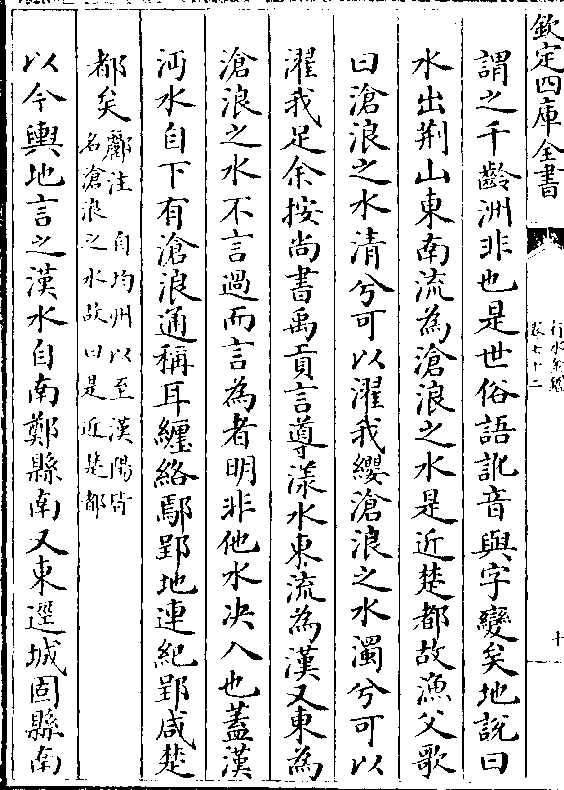 欽定四庫全書
行水金鑑
卷七十二
十
謂之千齡洲非也是世俗語訛音與字變矣地說曰
水出荆山東南流為滄浪之水是近楚都故漁父歌
曰滄浪之水清兮可以濯我纓滄浪之水濁兮可以
濯我足余按尚書禹貢言導漾水東流為漢又東為
滄浪之水不言過而言為者明非他水決入也蓋漢
沔水自下有滄浪通稱耳纏絡鄢郢地連紀郢咸楚
都矣酈注自均州以至漢陽皆
名滄浪之水故曰是近楚都
以今輿地言之漢水自南鄭縣南又東逕城固縣南